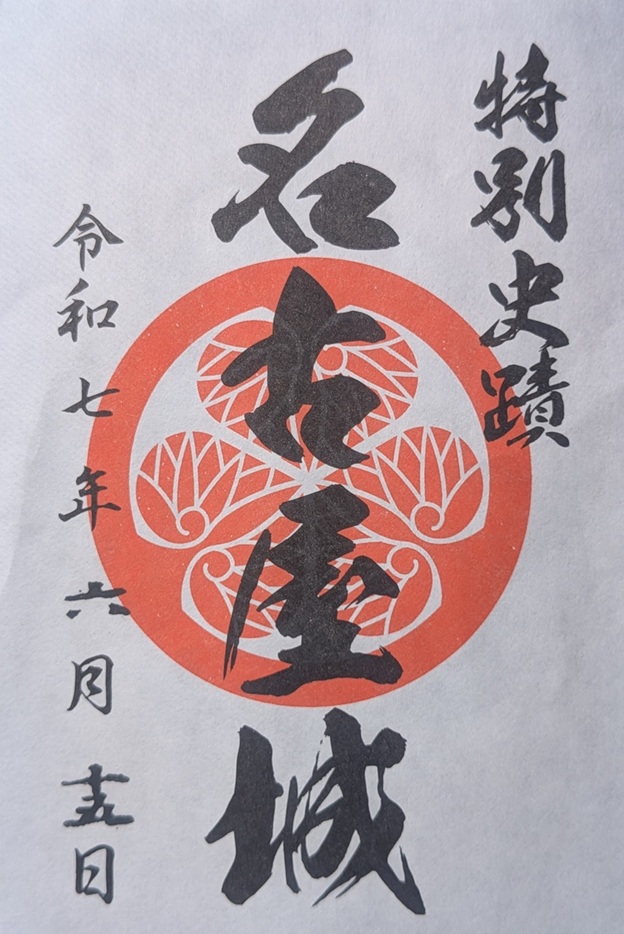 特別史蹟
名古屋城
令和七年六月十五日